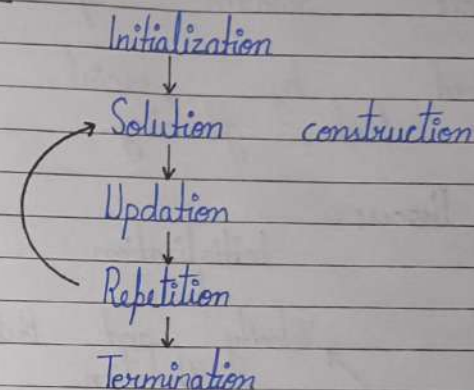 Initialization
Solution construction
Updation
Repetition
Termination